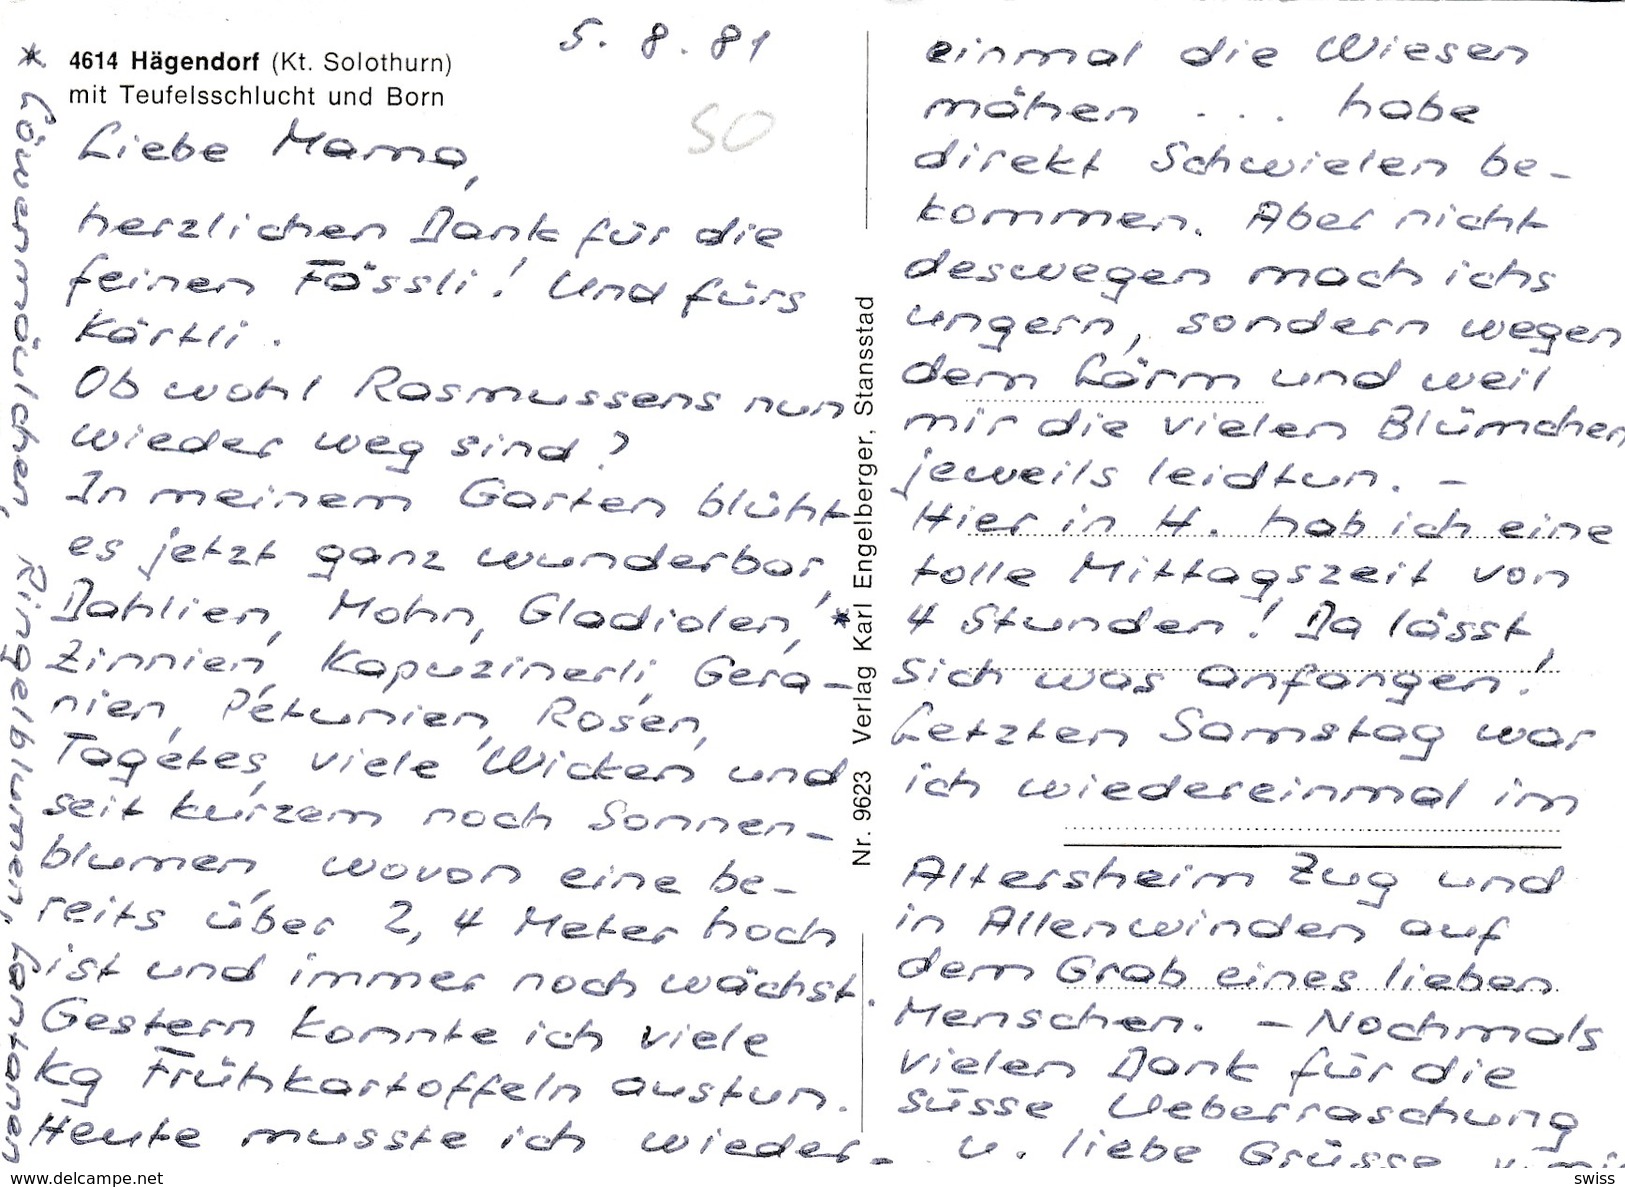 5. 8. 81
4614 Hägendorf (Kt. Solothurn)
mit Teufelsschlucht und Born
SO
Liebe Mama,
herzlichen Dank für die
feinen Fässli! Und fürs
Kärtli.
Ob wohl Rasmussens nun
wieder weg sind?
In meinem Garten blüht
es jetzt ganz wunderbar,
Dahlien, Mohn, Gladiolen, *
Zinnien, Kapuzinerli, Gera-
nien, Petunien, Rosen,
Tagetes, viele Wicken und
seit kurzem noch Sonnen-
blumen, wovon eine be-
reits über 2,4 Meter hoch
ist und immer noch wächst.
Gestern konnte ich viele
kg Frühkartoffeln austun.
Heute musste ich wieder-
* Löwenmäulchen, Ringelblumen, Lantanen
Nr. 9623 Verlag Karl Engelberger, Stansstad
einmal die Wiesen
mähen ... habe
direkt Schwielen be-
kommen. Aber nicht
deswegen mach ichs
ungern, sondern wegen
dem Lärm und weil
mir die vielen Blümchen
jeweils leidtun. –
Hier in H. hab ich eine
tolle Mittagszeit von
4 Stunden! Da lässt
sich was anfangen!
Letzten Samstag war
ich wiedereinmal im
Altersheim Zug und
in Allenwinden auf
dem Grab eines lieben
Menschen. – Nochmals
vielen Dank für die
süsse Ueberraschung
u. liebe Grüsse
www.delcampe.net
swiss